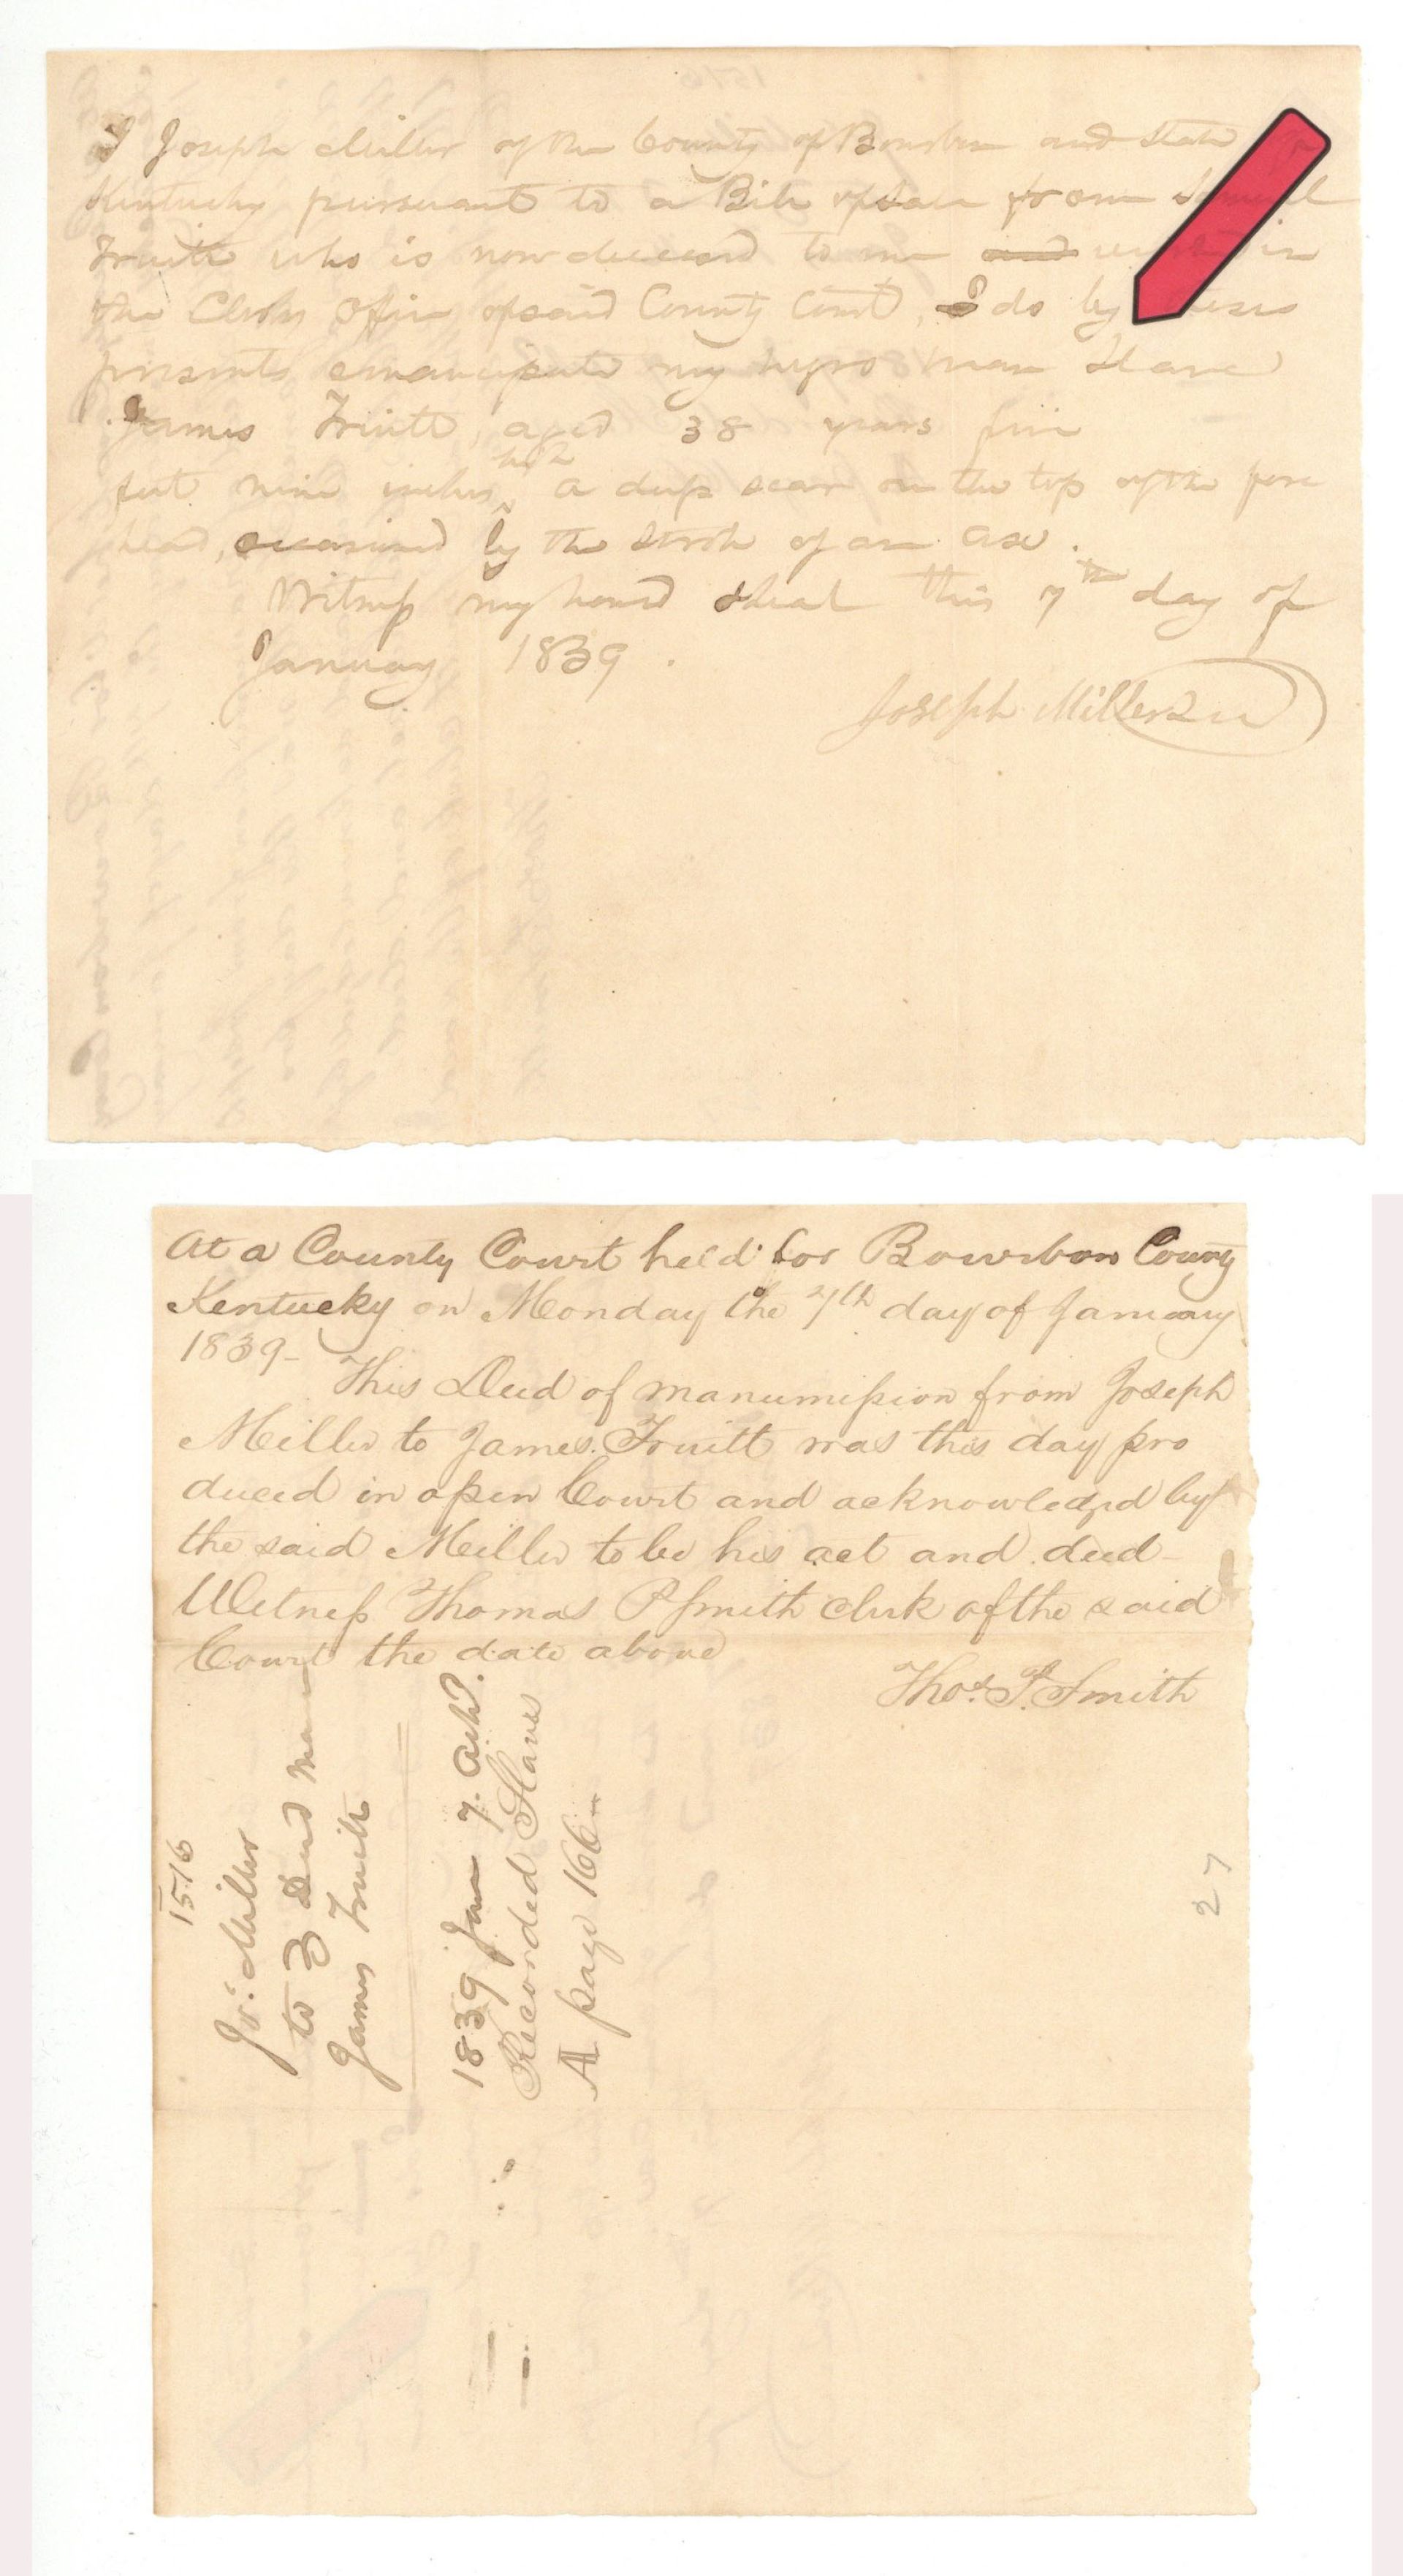 I Joseph Miller of the County of Bourbon and State of
Kentucky pursuant to a Bill of Sale from Samuel
Fruitt who is now deceased to me and in
the Clerks Office of said County Court, I do by these
presents emancipate my negro man Slave
James Fruitt, aged 38 years five
feet nine inches high a deep scar on the top of the fore
head, occasioned by the stroke of an axe.
Witness my hand & seal this 7th day of
January 1839.
Joseph Miller Seal
At a County Court held for Bourbon County
Kentucky on Monday the 7th day of January
1839-
This Deed of manumission from Joseph
Miller to James Fruitt was this day pro
duced in open Court and acknowledgd by
the said Miller to be his act and deed-
Witness Thomas P Smith clerk of the said
Court the date above
Thos. P. Smith
1516
Jos. Miller
to } Deed man
James Fruitt
1839 Jan 7. Ackd.
Recorded Slaves
A page 166
27